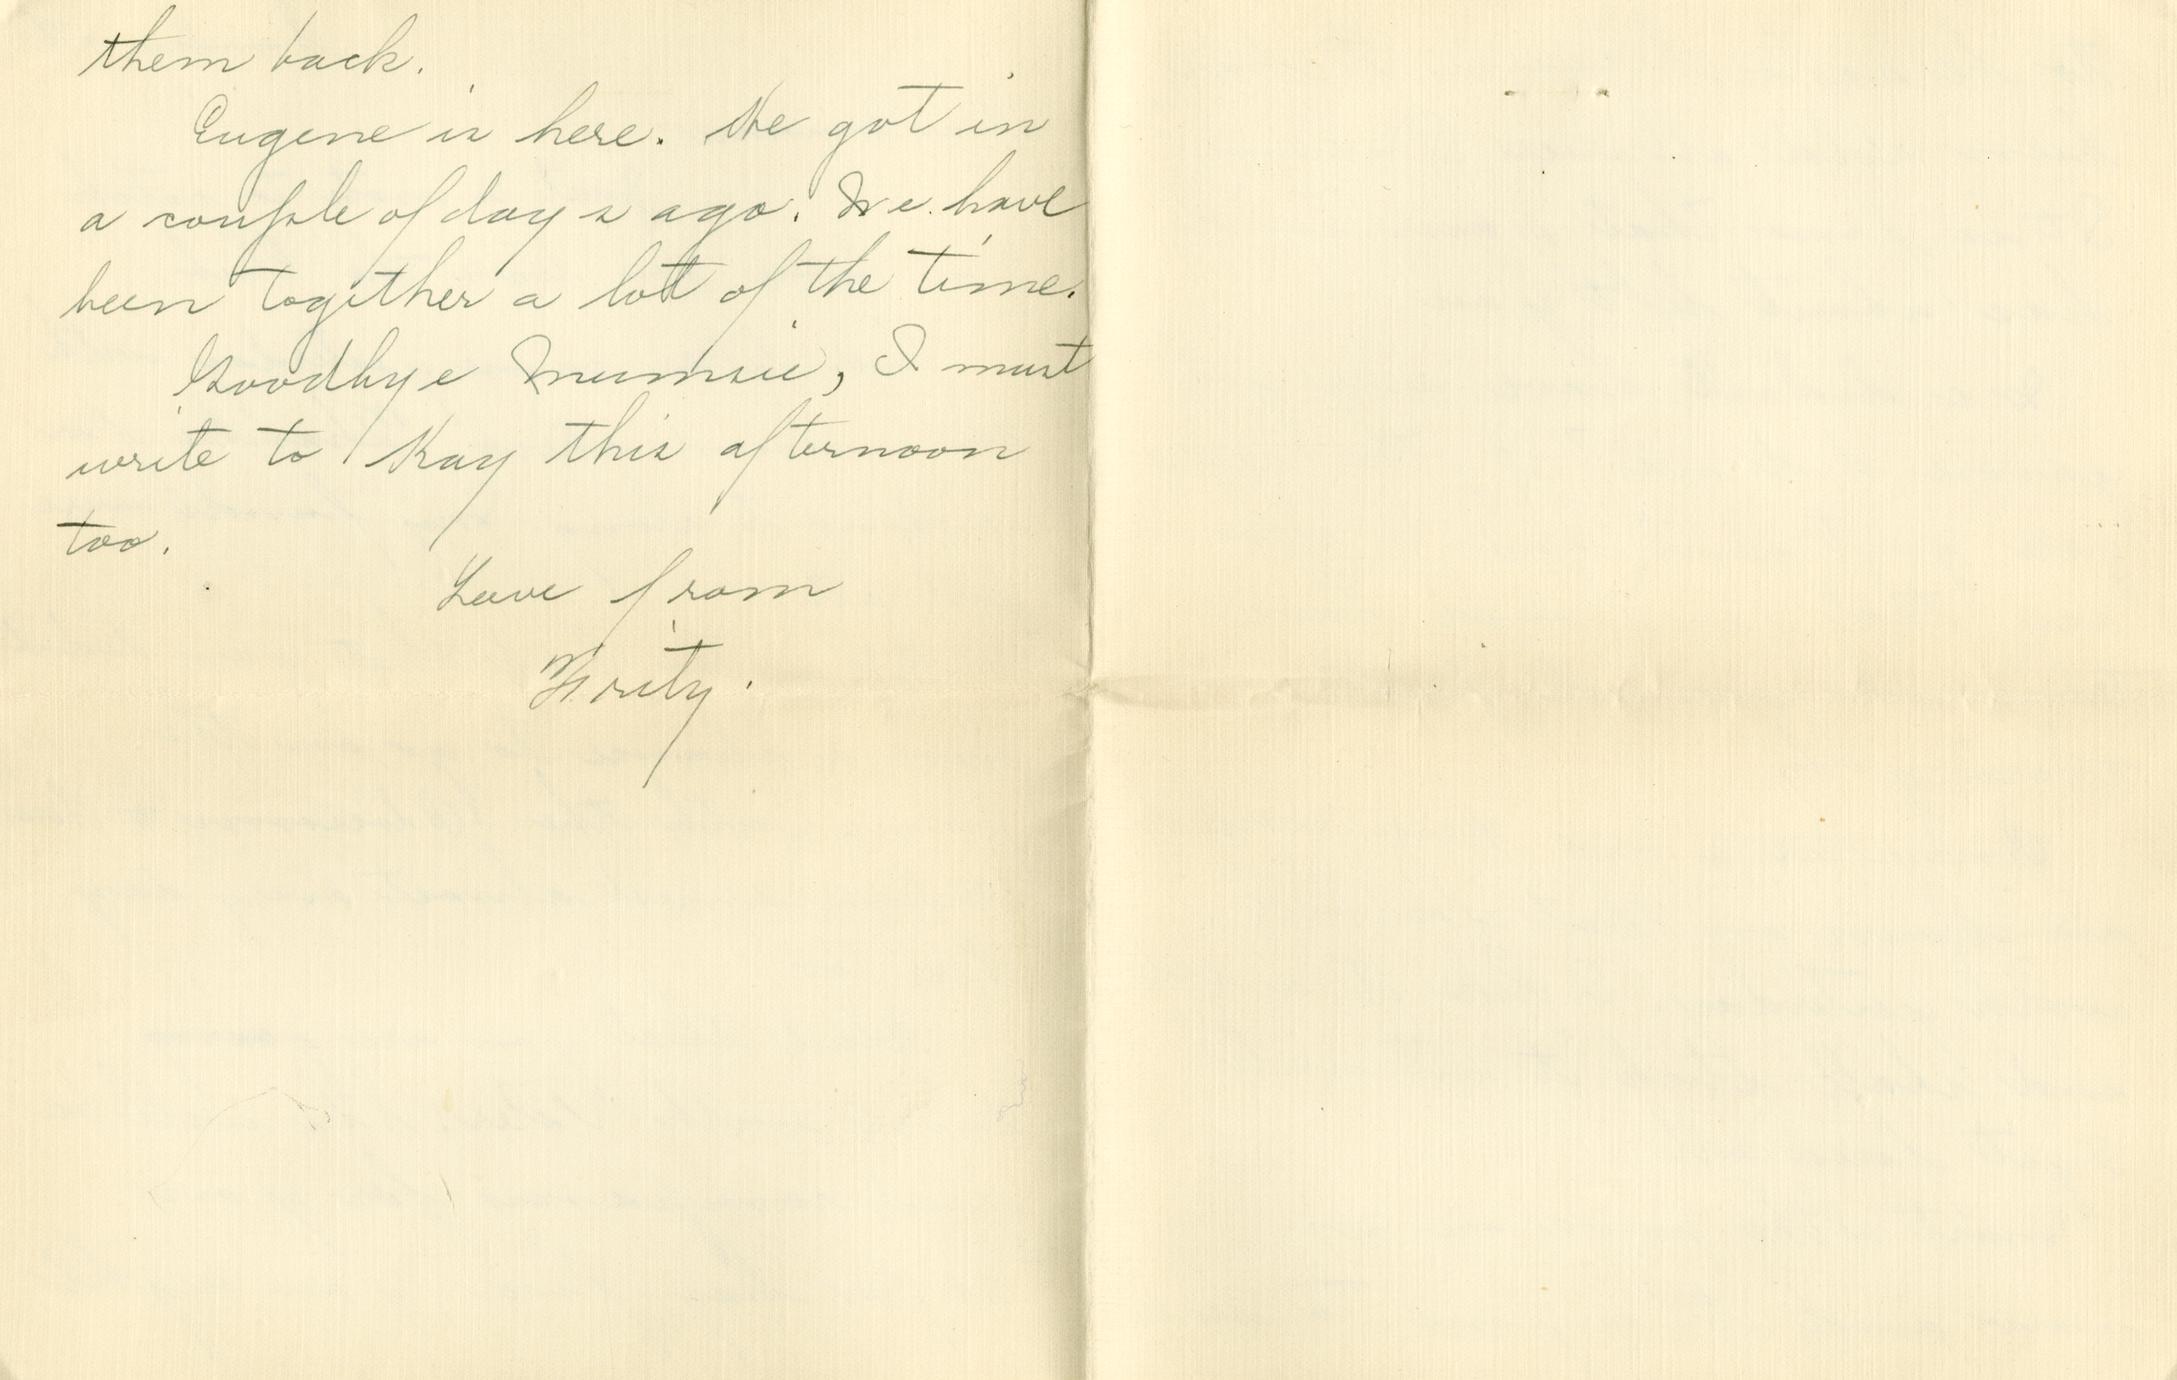 them back.
Eugene is here. He got in
a couple of days ago. We have
been together a lot of the time.
Goodbye Mumsie, I must
write to Kay this afternoon
too.
Love from
Frity.